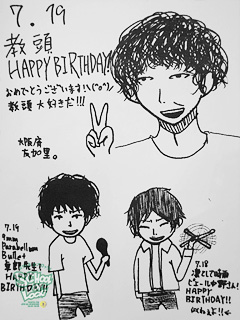 7.19
教頭
HAPPY BIRTHDAY!
おめでとうございます!\(^o^)/
教頭大好きだ!!!
大阪府
友加里。
7.19
9mm
Parabellum
Bullet
卓郎先生!
HAPPY
BIRTHDAY!!!
7.18
凛として時雨
ピエール中野さん!
HAPPY
BIRTHDAY!!